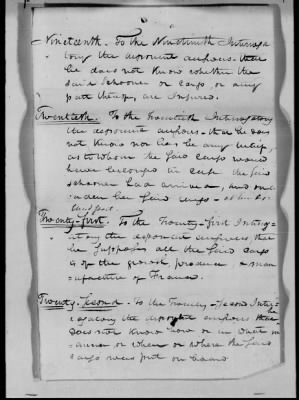 Nineteenth. To the Nineteenth Interroga
tory the deponent answers that
he does not know whether the
said schooner or cargo or any
part thereof, are Insured.
Twentieth. To the Twentieth Interrogatory
the deponent answers that he does
not know nor has he any belief,
as to whom the said cargo would
have belonged in case the said
schooner had arrived, and
her said cargo
Twenty-first. To the Twenty-first Interro
the deponent answers that
he supposes all the said cargo
is of the growth, produce, & man
ufacture of France.
Twenty-Second. To the Twenty-Second Inter
rogatory the deponent answers that he
does not know how or in what m
anner or when or where the said
cargo was put on board